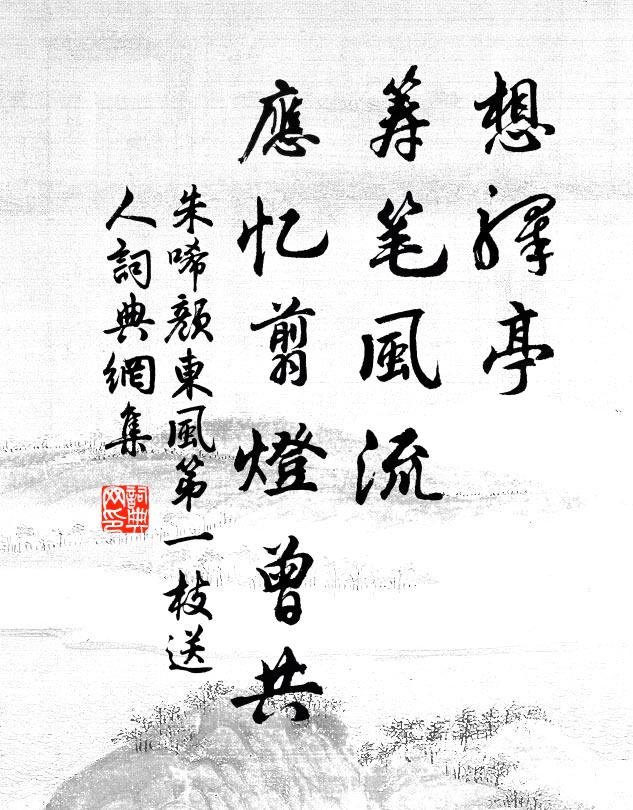 想驛亭
筹笔風流
應忆剪燈曾共
朱唏颜東風第一枝送
人詞典網集
詞典网印